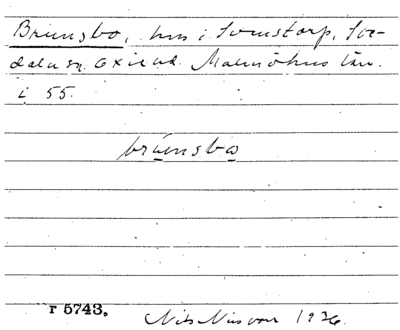 Brunsbo, hus i Tomstorp, Tor-
dala sn. Oxie hd. Malmöhus län.
i 55.
brúnsbo
r 5743.
Nils Nilsson 1936.